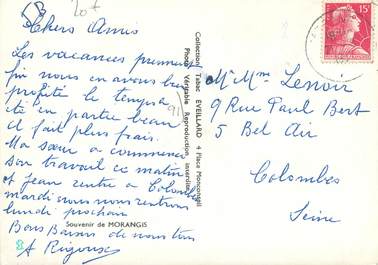 20f
Chers Amis
Les vacances prennent
fin nous en avons bien
profité le temps a
été en partie beau
il fait plus frais.
Ma sœur a commencé
son travail ce matin
et Jean rentre à Colombes
mardi nous nous rentrons
lundi prochain
Bons Baisers de nous tous
A Rigoux
Souvenir de MORANGIS
91
Collection Tabac EVEILLARD 4 Place Montcomgeli
Photo Véritable Reproduction interdite
15f
Mr Mme Lenoir
9 Rue Paul Bert
5 Bel Air
Colombes
Seine